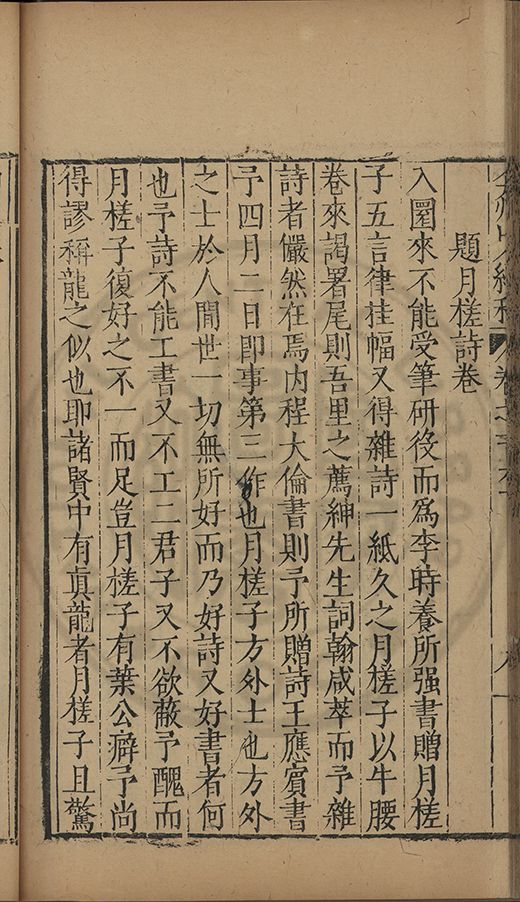 題月槎詩卷
入園來不能受筆研役而為李時養所强書贈月槎
子五言律挂幅又得雜詩一紙久之月槎子以牛腰
卷來謁署尾則吾里之薦紳先生詞翰咸萃而予雜
詩者儼然在焉內程大倫書則予所贈詩王應賓書
予四月二日即事第三作也月槎子方外士也方外
之士於人間世一切無所好而乃好詩又好書者何
也予詩不能工書又不工二君子又不欲蔽予醜而
月槎子復好之不一而足豈月槎子有葉公癖予尚
得謬稱龍之似也即諸賢中有眞龍者月槎子且驚